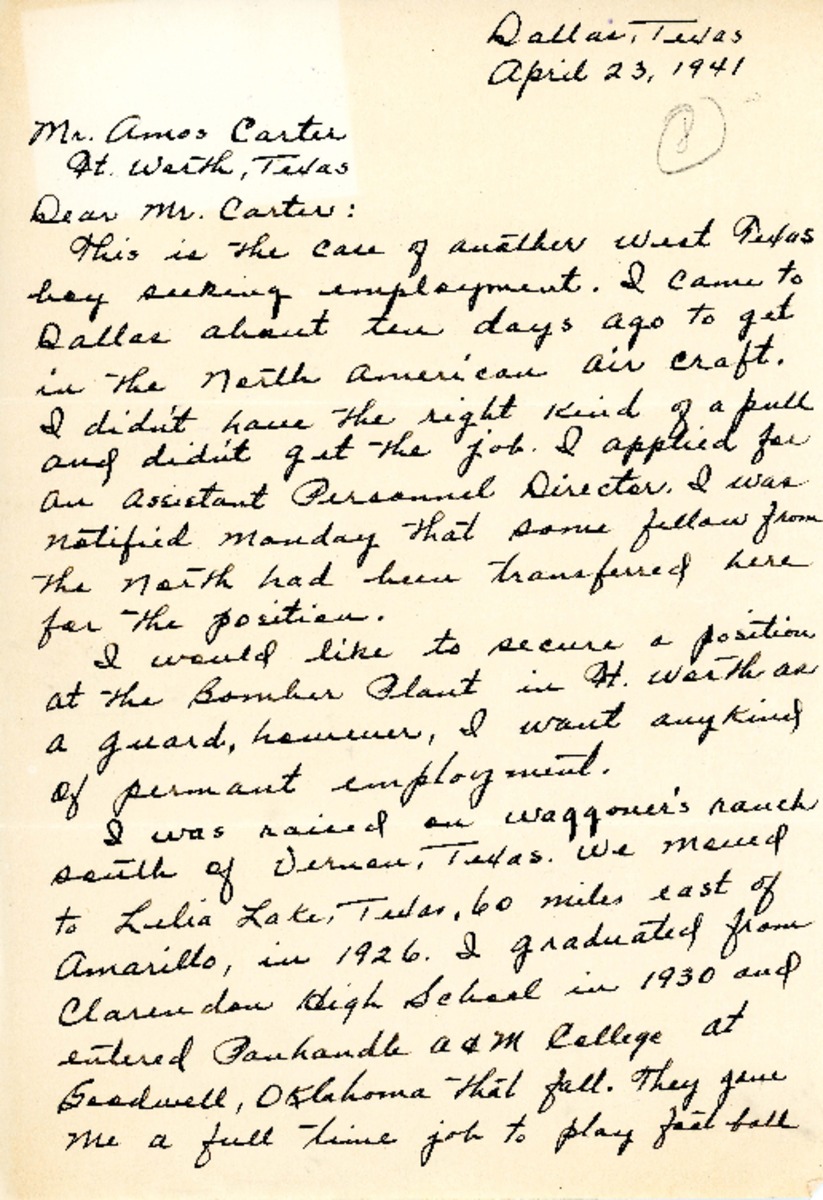 Dallas, Texas
April 23, 1941
8
Mr. Amos Carter
Ft. Worth, Texas
Dear Mr. Carter:
This is the case of another West Texas
boy seeking employment. I came to
Dallas about ten days ago to get
in the North American Air Craft.
I didn't have the right kind of a pull
and didn't get the job. I applied for
an Assistant Personnel Director. I was
notified Monday that some fellow from
the North had been transferred here
for the position.
I would like to secure a position
at the Bomber Plant in Ft. Worth as
a guard, however, I want anykind
of permant employment.
I was raised on Waggoner's ranch
south of Vernon, Texas. We moved
to Lelia Lake, Texas, 60 miles east of
Amarillo, in 1926. I graduated from
Clarendon High School in 1930 and
entered Panhandle A & M College at
Goodwell, Oklahoma that fall. They gave
me a full time job to play foot ball